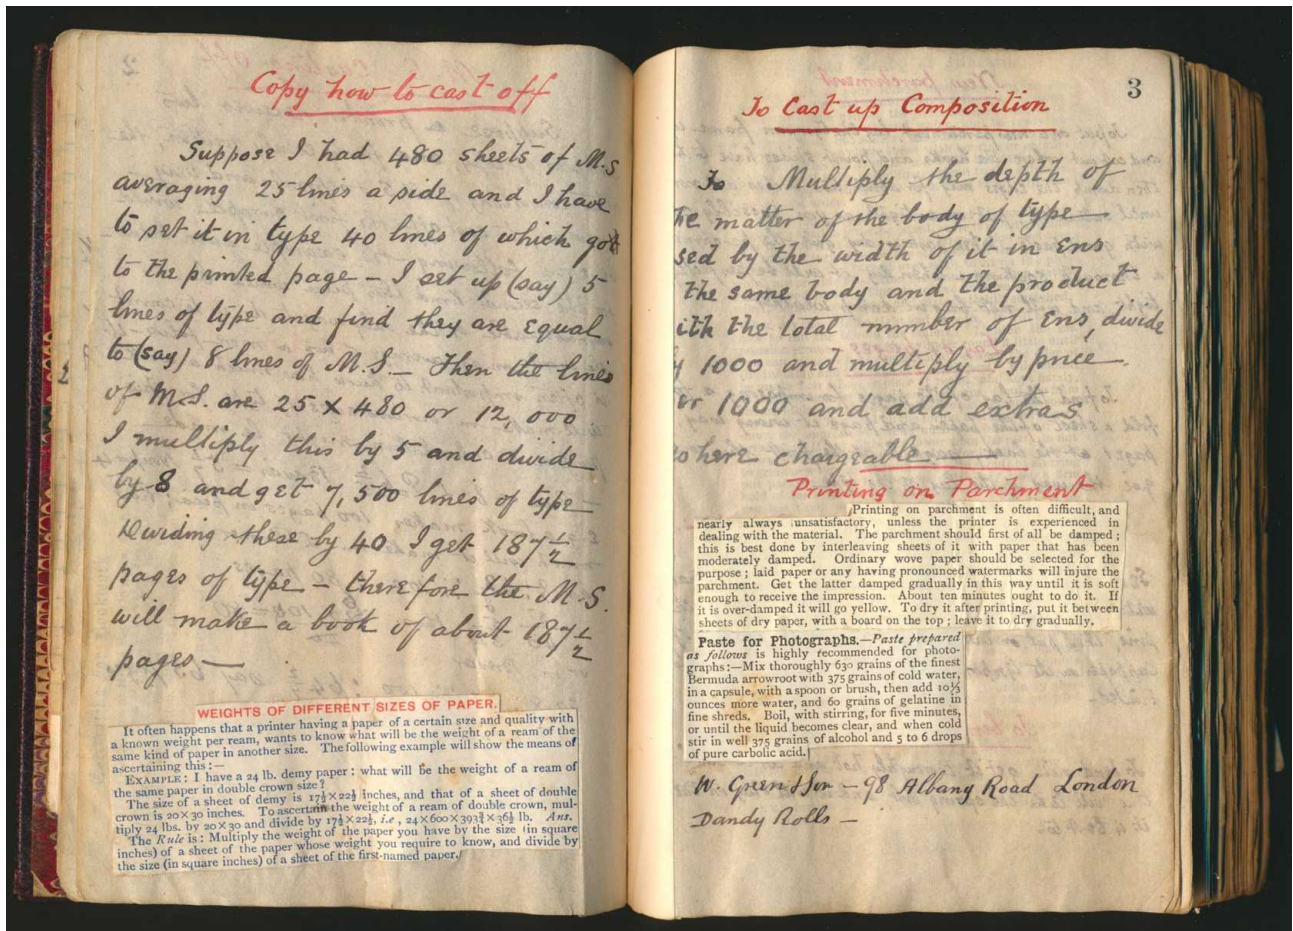 Copy how to cast off
Suppose I had 480 sheets of M.S
averaging 25 lines a side and I have
to set it in type 40 lines of which go
to the printed page – I set up (say) 5
lines of type and find they are equal
to (say) 8 lines of M.S. – Then the lines
of M.S. are 25 X 480 or 12,000
I multiply this by 5 and divide
by 8 and get 7,500 lines of type
Dividing these by 40 I get 187½
pages of type – therefore the M.S.
will make a book of about 187½
pages —
WEIGHTS OF DIFFERENT SIZES OF PAPER.
It often happens that a printer having a paper of a certain size and quality with
a known weight per ream, wants to know what will be the weight of a ream of the
same kind of paper in another size. The following example will show the means of
ascertaining this :—
EXAMPLE : I have a 24 lb. demy paper : what will be the weight of a ream of
the same paper in double crown size?
The size of a sheet of demy is 17½×22½ inches, and that of a sheet of double
crown is 20×30 inches. To ascertain the weight of a ream of double crown, mul-
tiply 24 lbs. by 20×30 and divide by 17½×22½, i.e., 24×600×393¾×36½ lb. Ans.
The Rule is : Multiply the weight of the paper you have by the size (in square
inches) of a sheet of the paper whose weight you require to know, and divide by
the size (in square inches) of a sheet of the first-named paper.
3
To Cast up Composition
To Multiply the depth of
he matter of the body of type
sed by the width of it in Ens
the same body and the product
ith the total number of Ens, divide
y 1000 and multiply by price
er 1000 and add extras
here chargeable
Printing on Parchment
Printing on parchment is often difficult, and
nearly always unsatisfactory, unless the printer is experienced in
dealing with the material. The parchment should first of all be damped ;
this is best done by interleaving sheets of it with paper that has been
moderately damped. Ordinary wove paper should be selected for the
purpose ; laid paper or any having pronounced watermarks will injure the
parchment. Get the latter damped gradually in this way until it is soft
enough to receive the impression. About ten minutes ought to do it. If
it is over-damped it will go yellow. To dry it after printing, put it between
sheets of dry paper, with a board on the top ; leave it to dry gradually.
Paste for Photographs.—Paste prepared
as follows is highly recommended for photo-
graphs :—Mix thoroughly 630 grains of the finest
Bermuda arrowroot with 375 grains of cold water,
in a capsule, with a spoon or brush, then add 10⅓
ounces more water, and 60 grains of gelatine in
fine shreds. Boil, with stirring, for five minutes,
or until the liquid becomes clear, and when cold
stir in well 375 grains of alcohol and 5 to 6 drops
of pure carbolic acid.
W. Green & Son – 98 Albany Road London
Dandy Rolls –